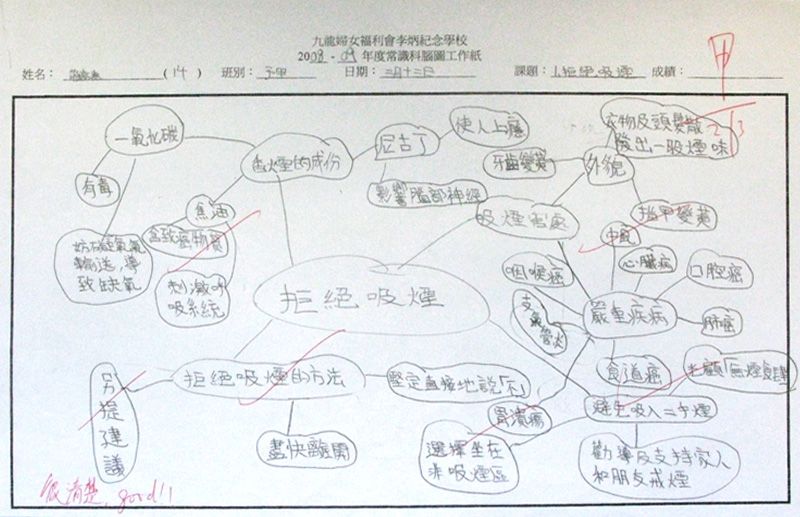 九龍婦女福利會李炳紀念學校
2008 - 09 年度常識科腦圖工作紙
姓名：
(14)
班別：五甲
日期：三月十三日
課題：1.拒絕吸煙
成績：
甲
2/3
一氧化碳
有毒
妨礙氧氣
輸送，導
致缺氧
香煙的成份
焦油
含致癌物質
刺激呼
吸系統
尼古丁
使人上癮
影響腦部神經
衣物及頭髮散
發出一股煙味
外貌
牙齒變黃
指甲變黃
吸煙害處
中風
心臟病
口腔癌
咽喉癌
嚴重疾病
肺癌
支氣管炎
食道癌
胃潰瘍
拒絕吸煙
拒絕吸煙的方法
堅定直接地說「不」
另提建議
盡快離開
避免吸入二手煙
光顧「無煙食肆」
選擇坐在
非吸煙區
勸導及支持家人
和朋友戒煙
很清楚，good!!